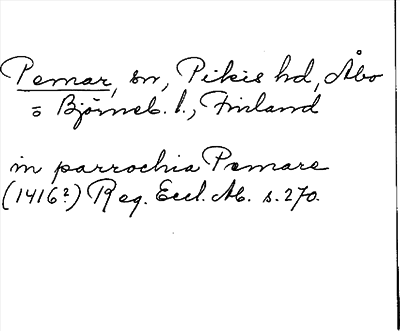 Pemar, sn, Pikis hd, Åbo
o Björneb. l., Finland
in parrochia Pemare
(1416?) Reg. Eccl. Ab. s. 270.